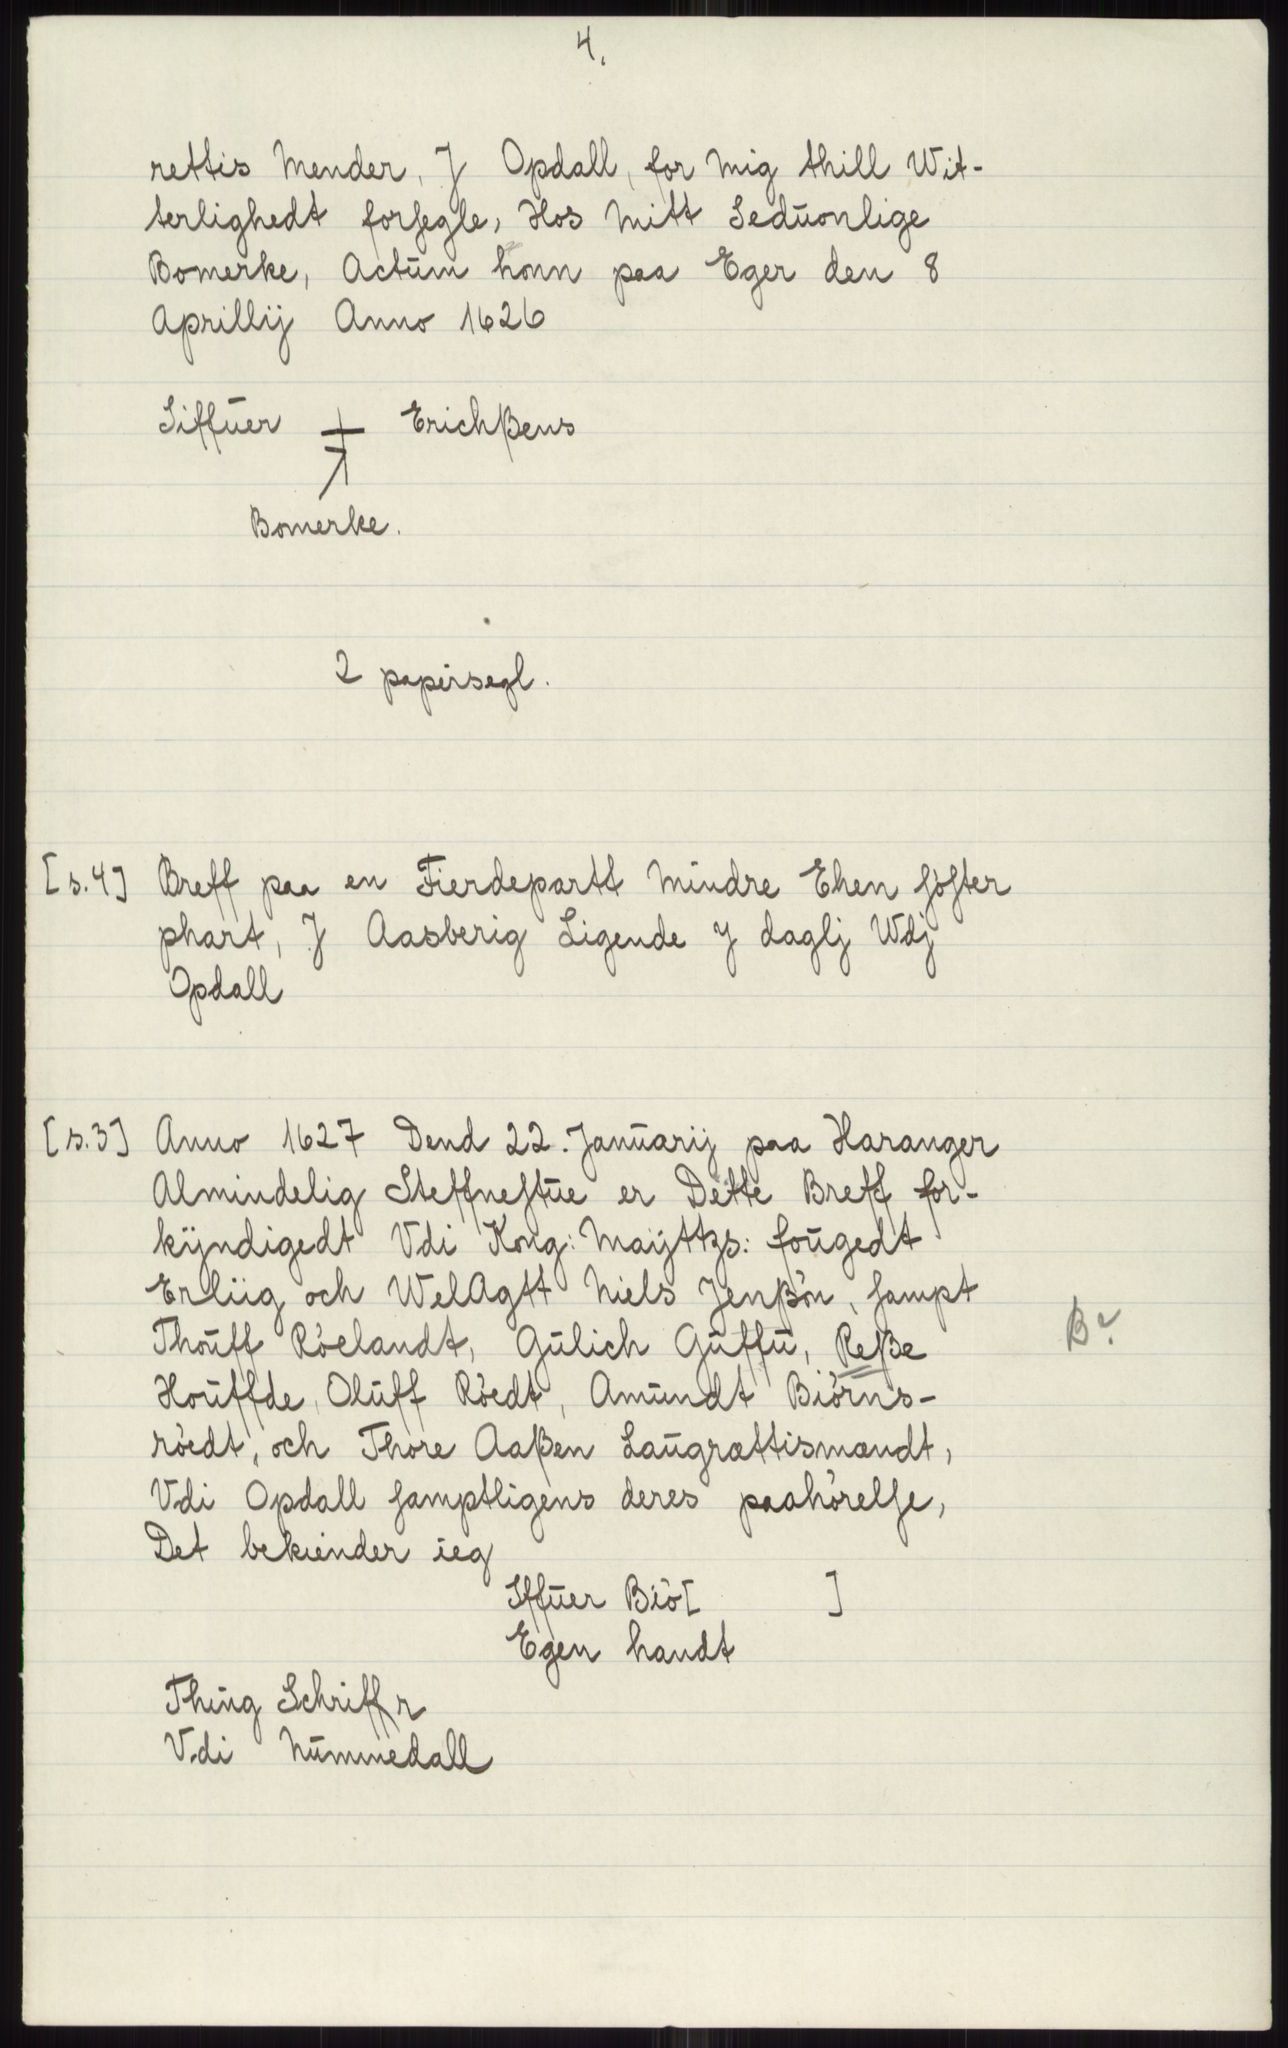 4.
rettis Mender, J Opdall, for Mig thill Wit-
terlighedt forsegle, Hos Mitt Seduonlige
Bomerke, Actum honn paa Eger den 8
Aprillij Anno 1626
Siffuer Erichßens
Bomerke.
2 papirsegl.
[s.4] Breff paa en Fierdepartt Mindre Ehen søster
phart, J Aasberig Ligende y daglj Wdj
Opdall
[s.3] Anno 1627 Dend 22. Januarij paa Haranger
Almindelig Steffnestue er Dette Breff for-
kyndigedt Vdi Kong: Mayttzs: fougedt
Erliig och WelAgtt Niels Jenßøn, sampt
Thouff Røelandt, Gulich Guffu, Reße B?
Houffde, Oluff Røedt, Amundt Biørns-
røedt, och Thore Aaßen Laugrættismændt,
Vdi Opdall samptligens deres paahørelse,
Det bekiender ieg
Iffuer Biø[ ]
Egen handt
Thing Schriffr
Vdi Nummedall